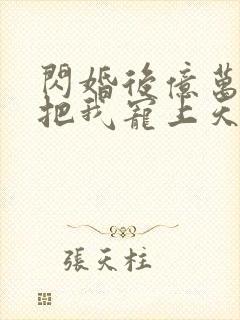 閃婚後億萬
把我寵上天
張天柱